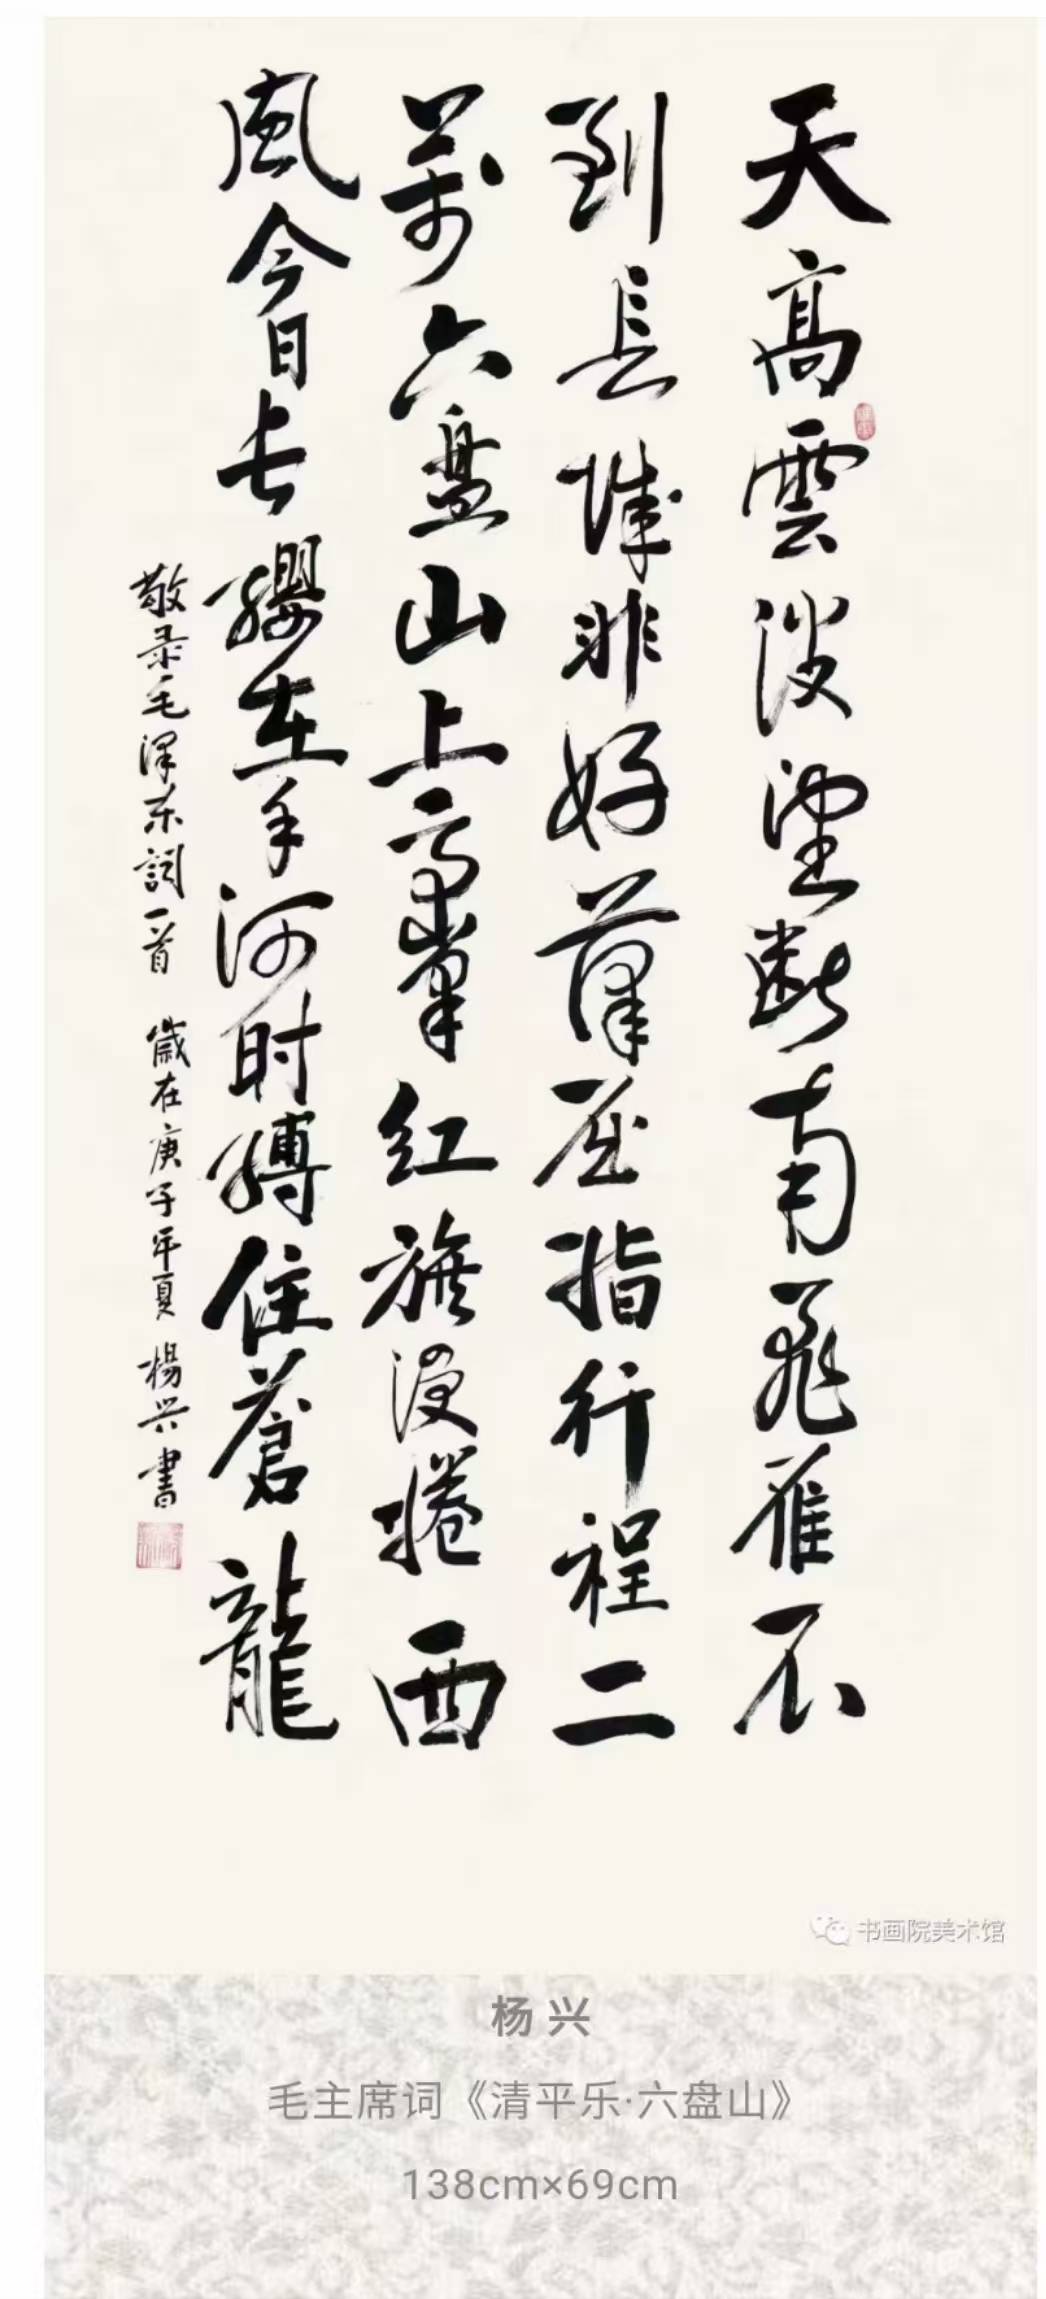 天高雲淡望斷南飛雁不
到長城非好漢屈指行程二
萬六盤山上高峯红旗漫捲西
風今日長纓在手何時縛住蒼龍
敬录毛澤东詞一首 歲在庚子年夏 楊兴書
书画院美术馆
杨兴
毛主席词《清平乐·六盘山》
138cm×69cm